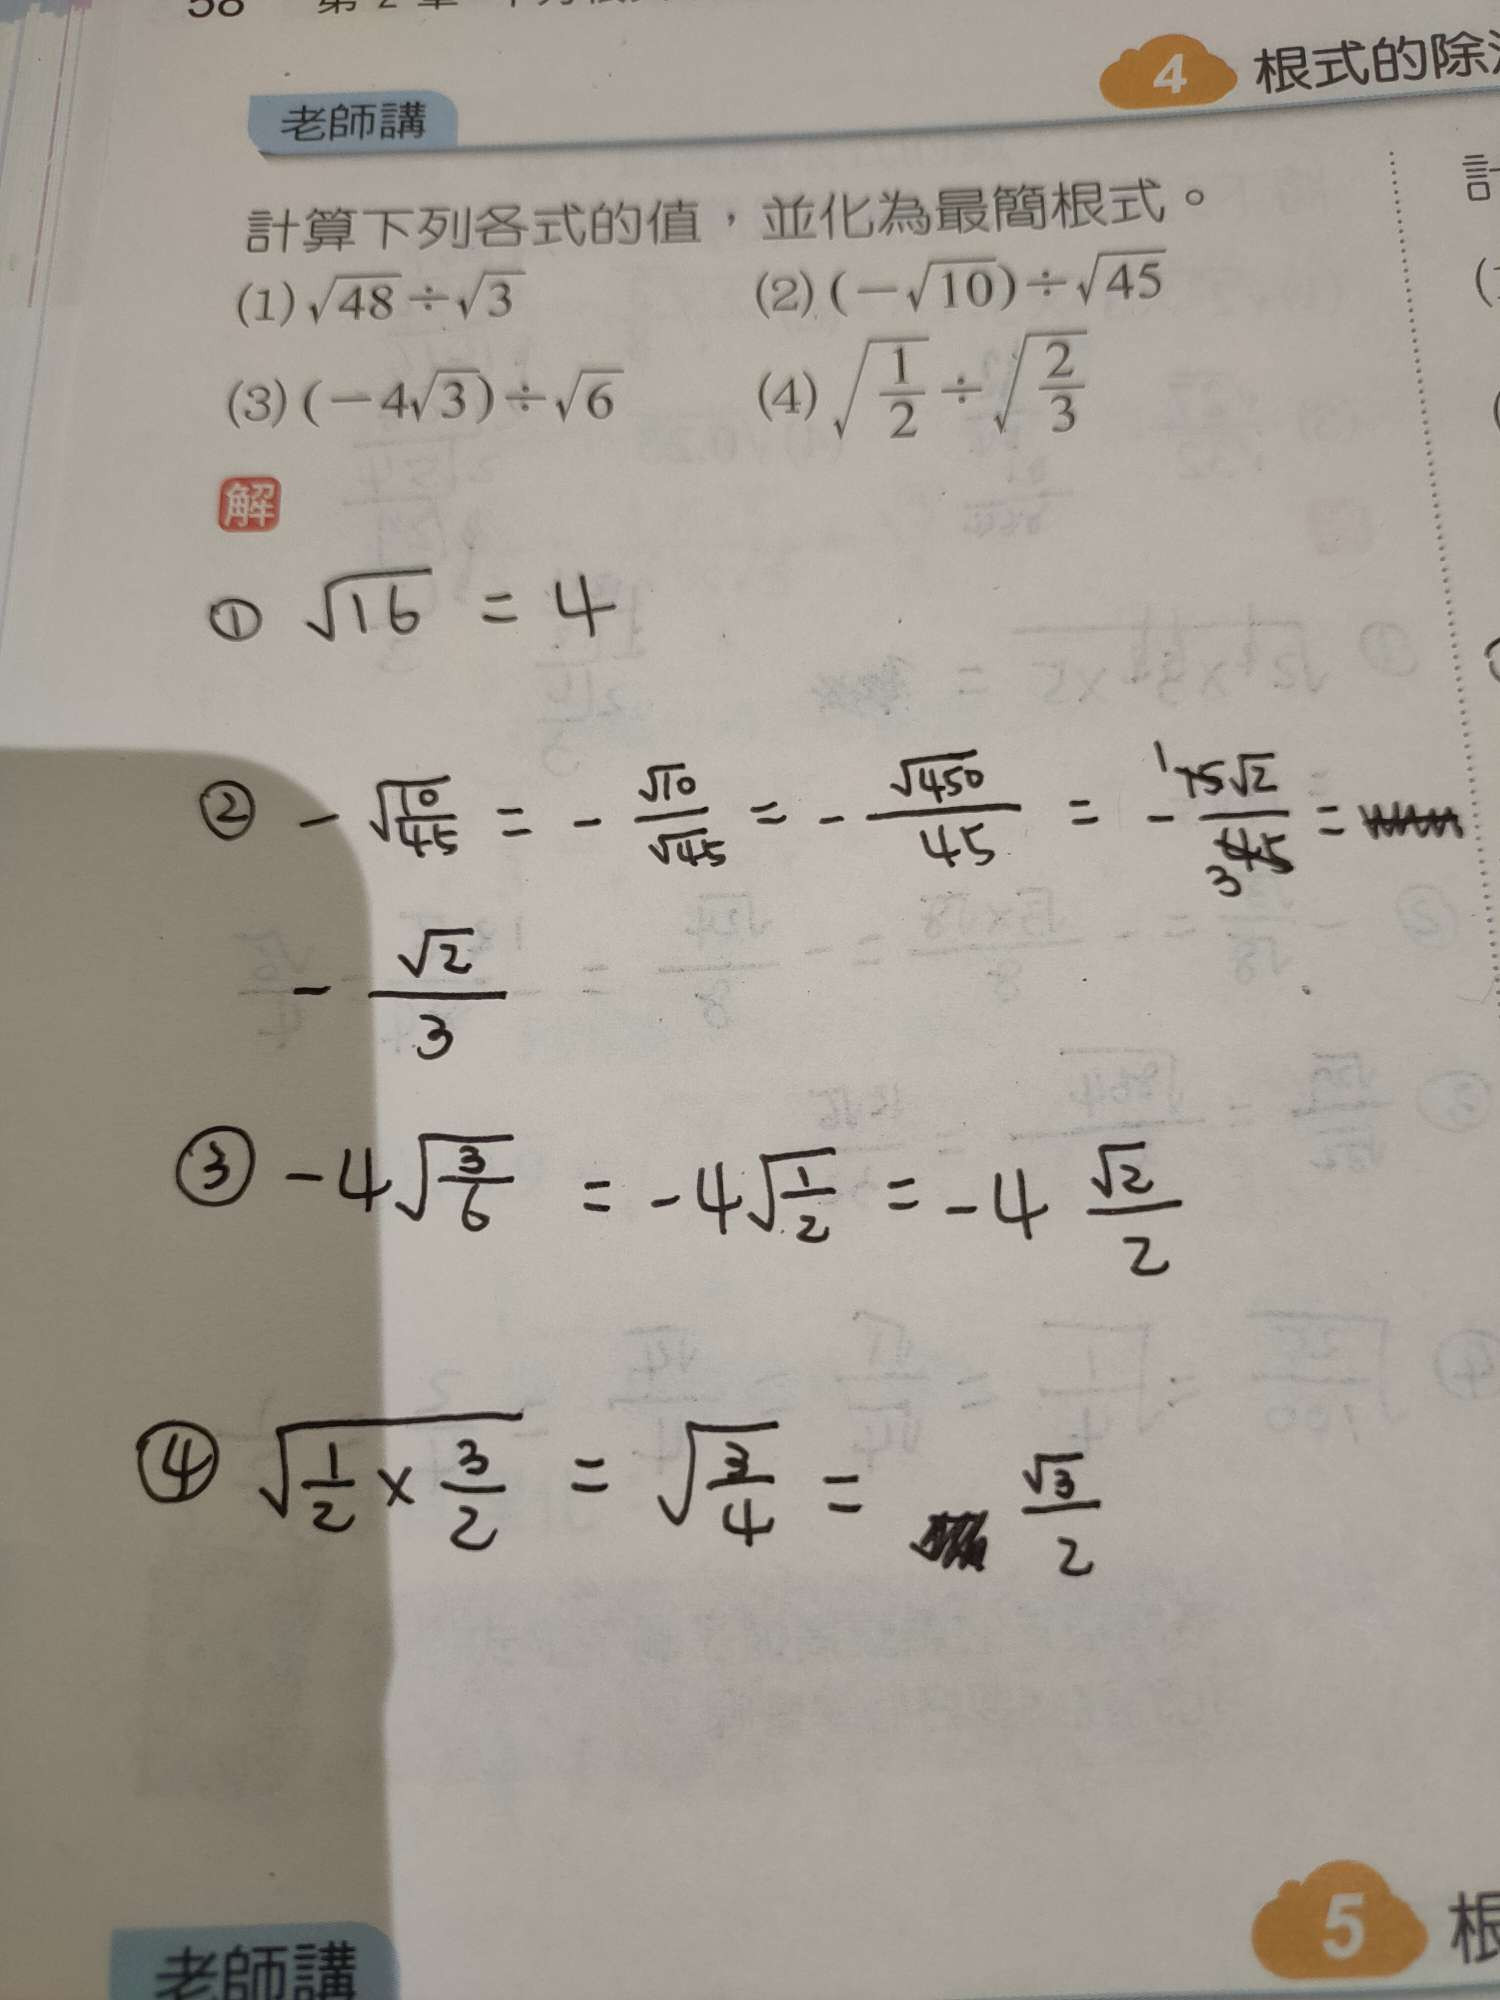 58 第 2 章
4 根式的除
老師講
計算下列各式的值，並化為最簡根式。
(1) √48 ÷ √3 (2) (−√10) ÷ √45
(3) (−4√3) ÷ √6 (4) √(1/2) ÷ √(2/3)
解
① √16 = 4
② − √(10/45) = − √10/√45 = − √450/45 = − 15√2/45 1 3 =
− √2/3
③ −4√(3/6) = −4√(1/2) = −4 √2/2
④ √(1/2 × 3/2) = √(3/4) = √3/2
5 根
老師講